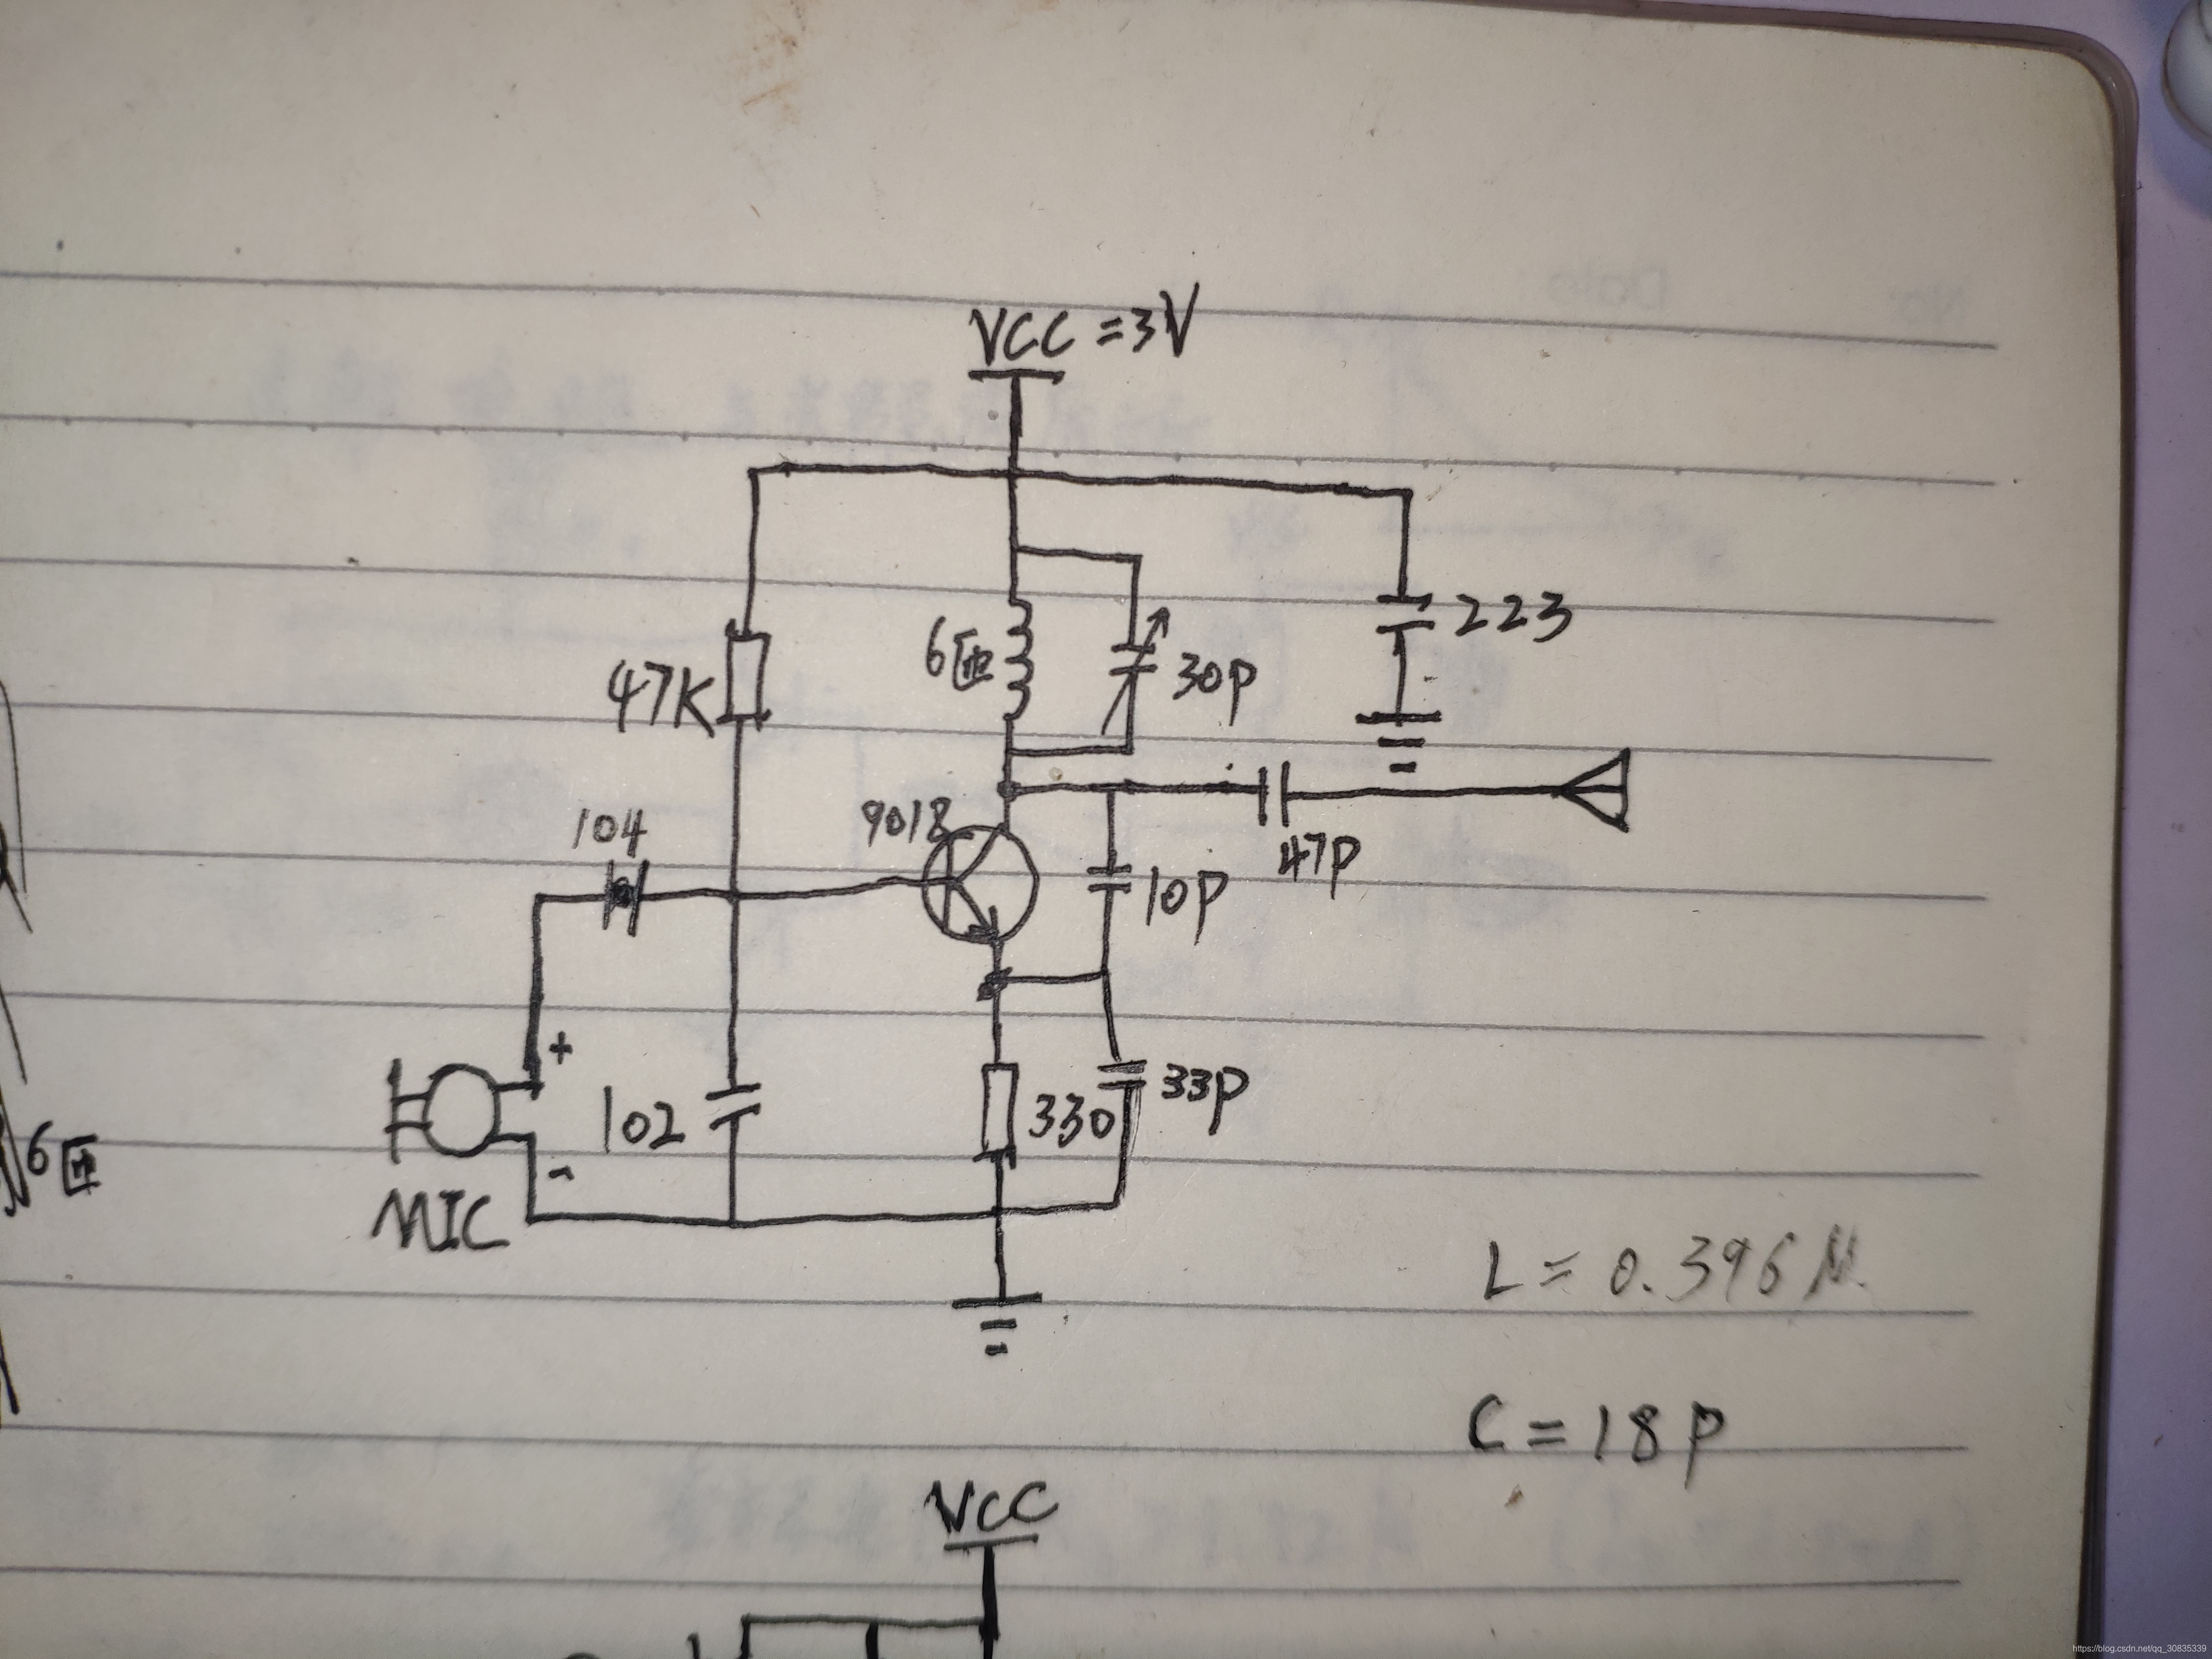 VCC = 3V
223
6匝
30P
47K
9018
104
47P
10P
+
102
330
33P
-
MIC
6匝
L = 0.396 M
C = 18P
VCC
https://blog.csdn.net/qq_30835339